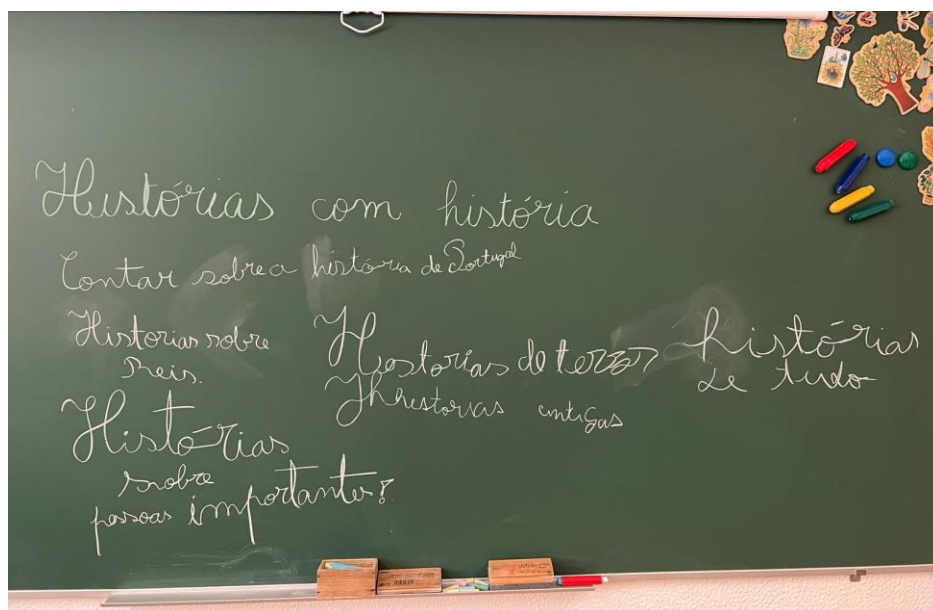 Histórias com história
Contar sobre a história de Portugal
Historias sobre
Reis.
Hestorias de terror
Jhhestorias antigas
histórias
de tudo
Histórias
sobre
pessoas importantes?